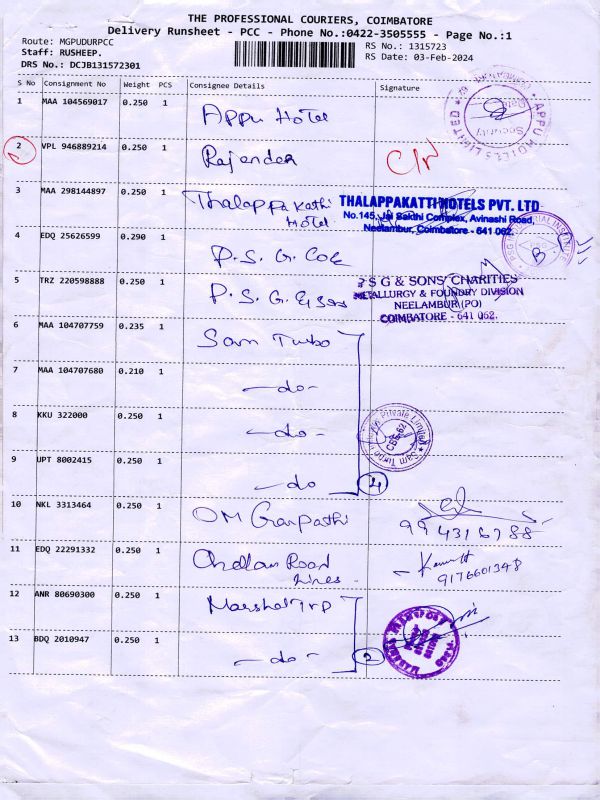 THE PROFESSIONAL COURIERS, COIMBATORE
Delivery Runsheet - PCC - Phone No.:0422-3505555 - Page No.:1
Route: MGPUDURPCC
RS No.: 1315723
Staff: RUSHEEP.
RS Date: 03-Feb-2024
DRS No.: DCJB131572301
S No Consignment No Weight PCS Consignee Details Signature
1 MAA 104569017 0.250 1 Appu Hotel
APPU HOTELS LIMITED
Security
2 VPL 946889214 0.250 1 Rajender C/N
3 MAA 298144897 0.250 1 Thalappakathi Hotel
THALAPPAKATTI HOTELS PVT. LTD
No.145, Jai Sakthi Complex, Avinashi Road,
Neelambur, Coimbatore - 641 062.
4 EDQ 25626599 0.290 1 P.S.G. Coe
PSG
5 TRZ 220598888 0.250 1 P.S.G. & Sons
P S G & SONS' CHARITIES
METALLURGY & FOUNDRY DIVISION
NEELAMBUR (PO)
COIMBATORE - 641 062.
6 MAA 104707759 0.235 1 Sam Turbo
7 MAA 104707680 0.210 1 -do-
8 KKU 322000 0.250 1 -do-
Sam Turbo Private Limited
CBE-62
9 UPT 8002415 0.250 1 -do 4
10 NKL 3313464 0.250 1 OM Ganpathi
994316788
11 EDQ 22291332 0.250 1 Road Lines
9176601348
12 ANR 80690300 0.250 1 Marshal
13 BDQ 2010947 0.250 1 -do- 2